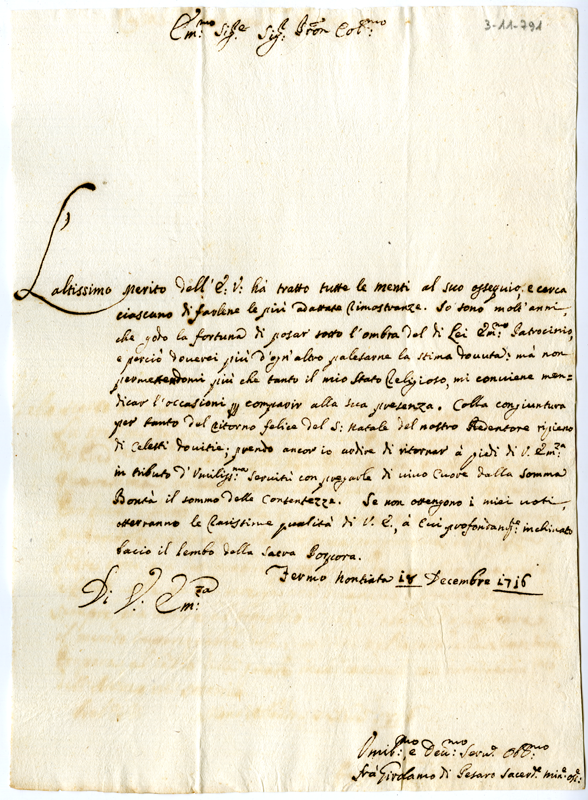 3-11-791
Em:mo Sig:re Sig:r Pron Col:mo
L'altissimo merito dell'E. V: hà tratto tutte le menti al suo ossequio, e cerca
ciascuno di farlene le più adattate rimostranze. Io sono molt'anni,
che godo la fortuna di posar sotto l'ombra del di Lei Em:mo Patrocinio,
e perciò doverei più d'ogn'altro palesarne la stima dovuta: mà non
permettendomi più che tanto il mio Stato Religioso, mi conviene men-
dicar l'occasioni comparir alla sua presenza. Colla congiuntura
per tanto del ritorno felice del S: Natale del nostro Redentore ripieno
di Celesti dovitie; prendo ancor io ardire di ritornar à piedi di V. Em:za
in tributo d'Umiliss:ma servitù con pregarle di vivo Cuore dalla somma
Bontà il sommo delle Contentezze. Se non ottengono i miei voti,
otterranno le rarissime qualità di V. E., à Cui profondam:te inchinato
bacio il lembo della Sacra Porpora.
Fermo 18 Decembre 1716
Di V: Em:za
Umil:mo e Dev:mo Serv:e Obb:mo
frà Girolamo di Pesaro Sacerd:e